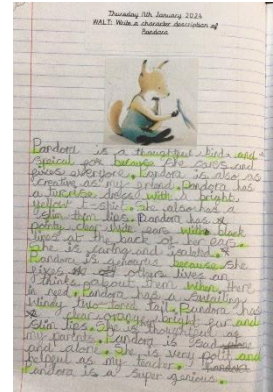 Thursday 11th January 2024
WALT: Write a character description of
Pandora
Pandora is a thoughtful, kind and
spical fox because she cares and
fixes everyone. Pandora is also as
creative as my friend. Pandora has
a turcoise dress with a bright
yellow t-shirt. She also has a
slim thin lips. Pandora has
pointy ears with black
at the back of her ears.
She is caring and isolated.
Pandora is because she
fixes others lives an
thinks about them when there
in need. Pandora has a
tail.
bright fur and
slim lips. She is thoughtful as
my parents. Pandora is sad
and alone. She is very polit and
helpful as my teacher.
Pandora is a super genious.